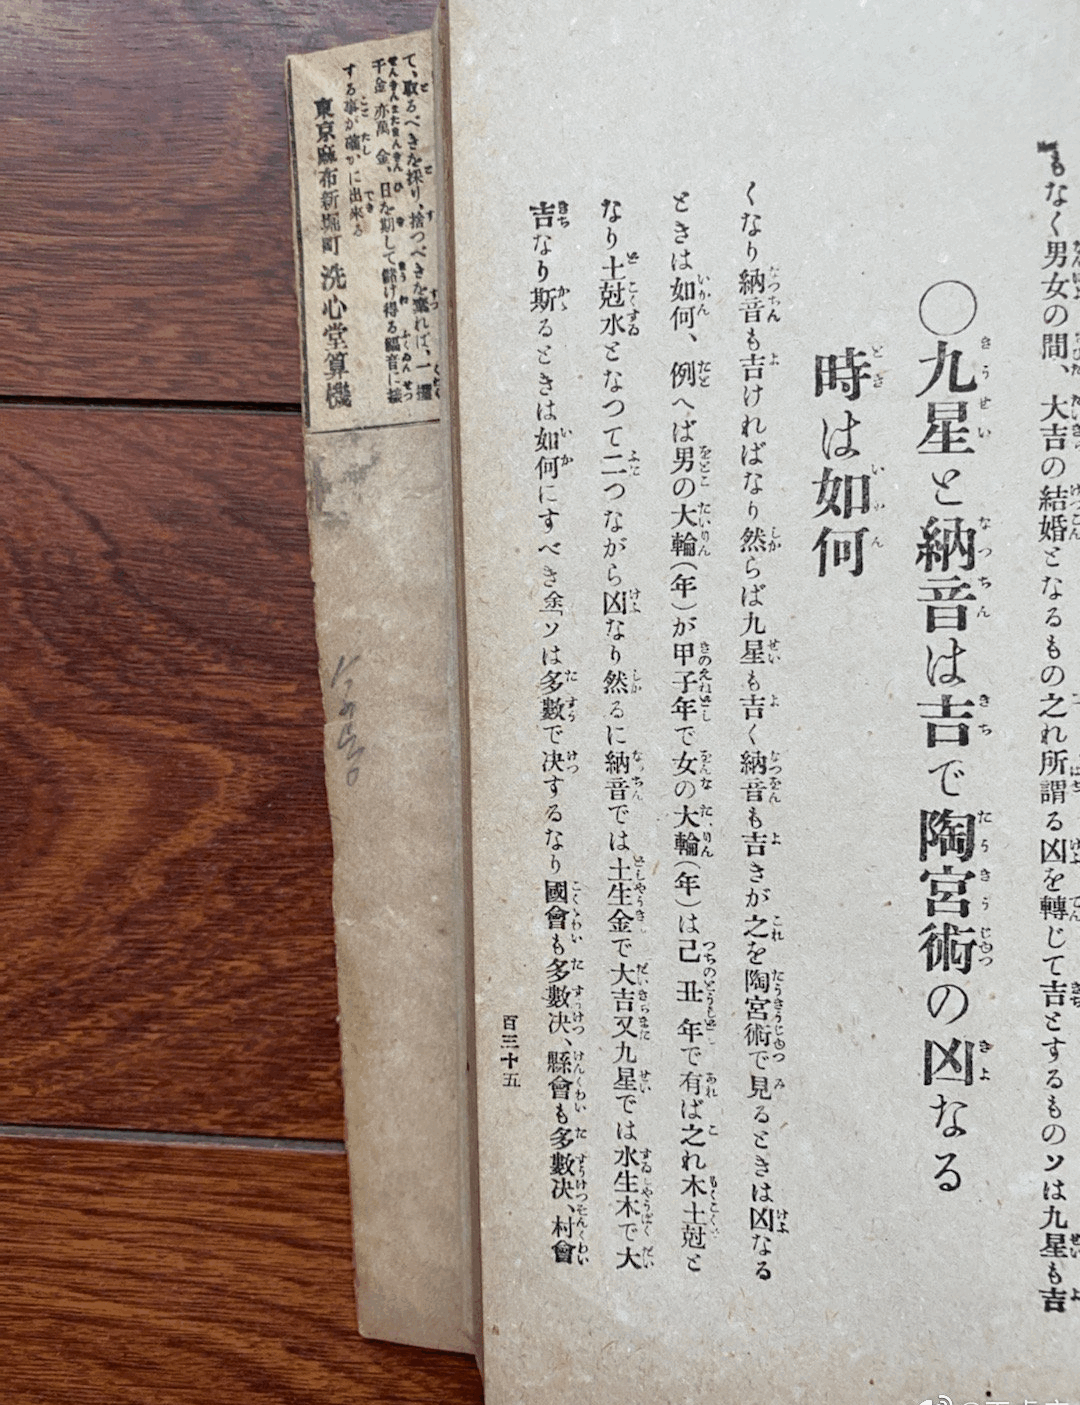 もなく男女の間、大吉の結婚となるもの之れ所謂る凶を轉じて吉とするものソは九星も吉
〇九星と納音は吉で陶宮術の凶なる
時は如何
くなり納音も吉ければなり然らば九星も吉く納音も吉きが之を陶宮術で見るときは凶なる
ときは如何、例へば男の大輪(年)が甲子年で女の大輪(年)は己丑年で有ば之れ木土尅と
なり土尅水となつて二つながら凶なり然るに納音では土生金で大吉又九星では水生木で大
吉なり斯るときは如何にすべき余「ソは多數で决するなり國會も多數决、縣會も多數决、村會
百三十五
て、取るべきを採り、捨つべきを棄れば、一攫
千金亦萬金、日を期して儲け得る福音に接
する事が確かに出來る
東京麻布新堀町 洗心堂算機